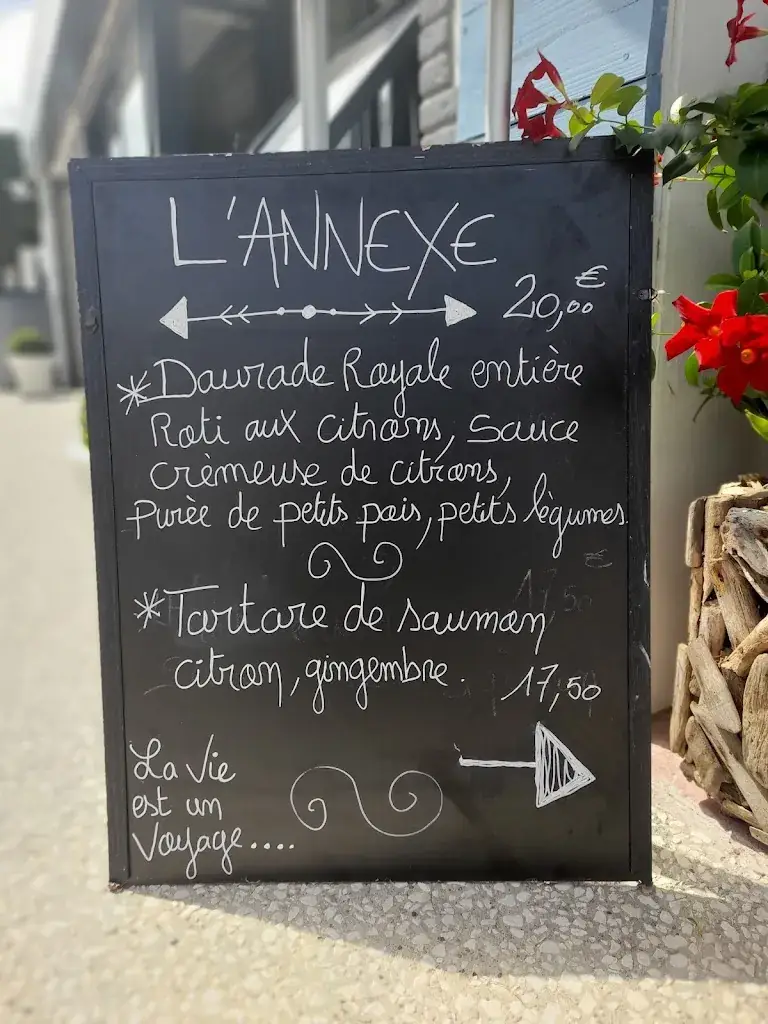 L'ANNEXE
20,00 €
*Daurade Royale entière
Roti aux citrons, sauce
crèmeuse de citrons,
Purèe de petits pois, petits légumes
*Tartare de saumon
citron, gingembre.
17,50
La Vie
est un
Voyage....